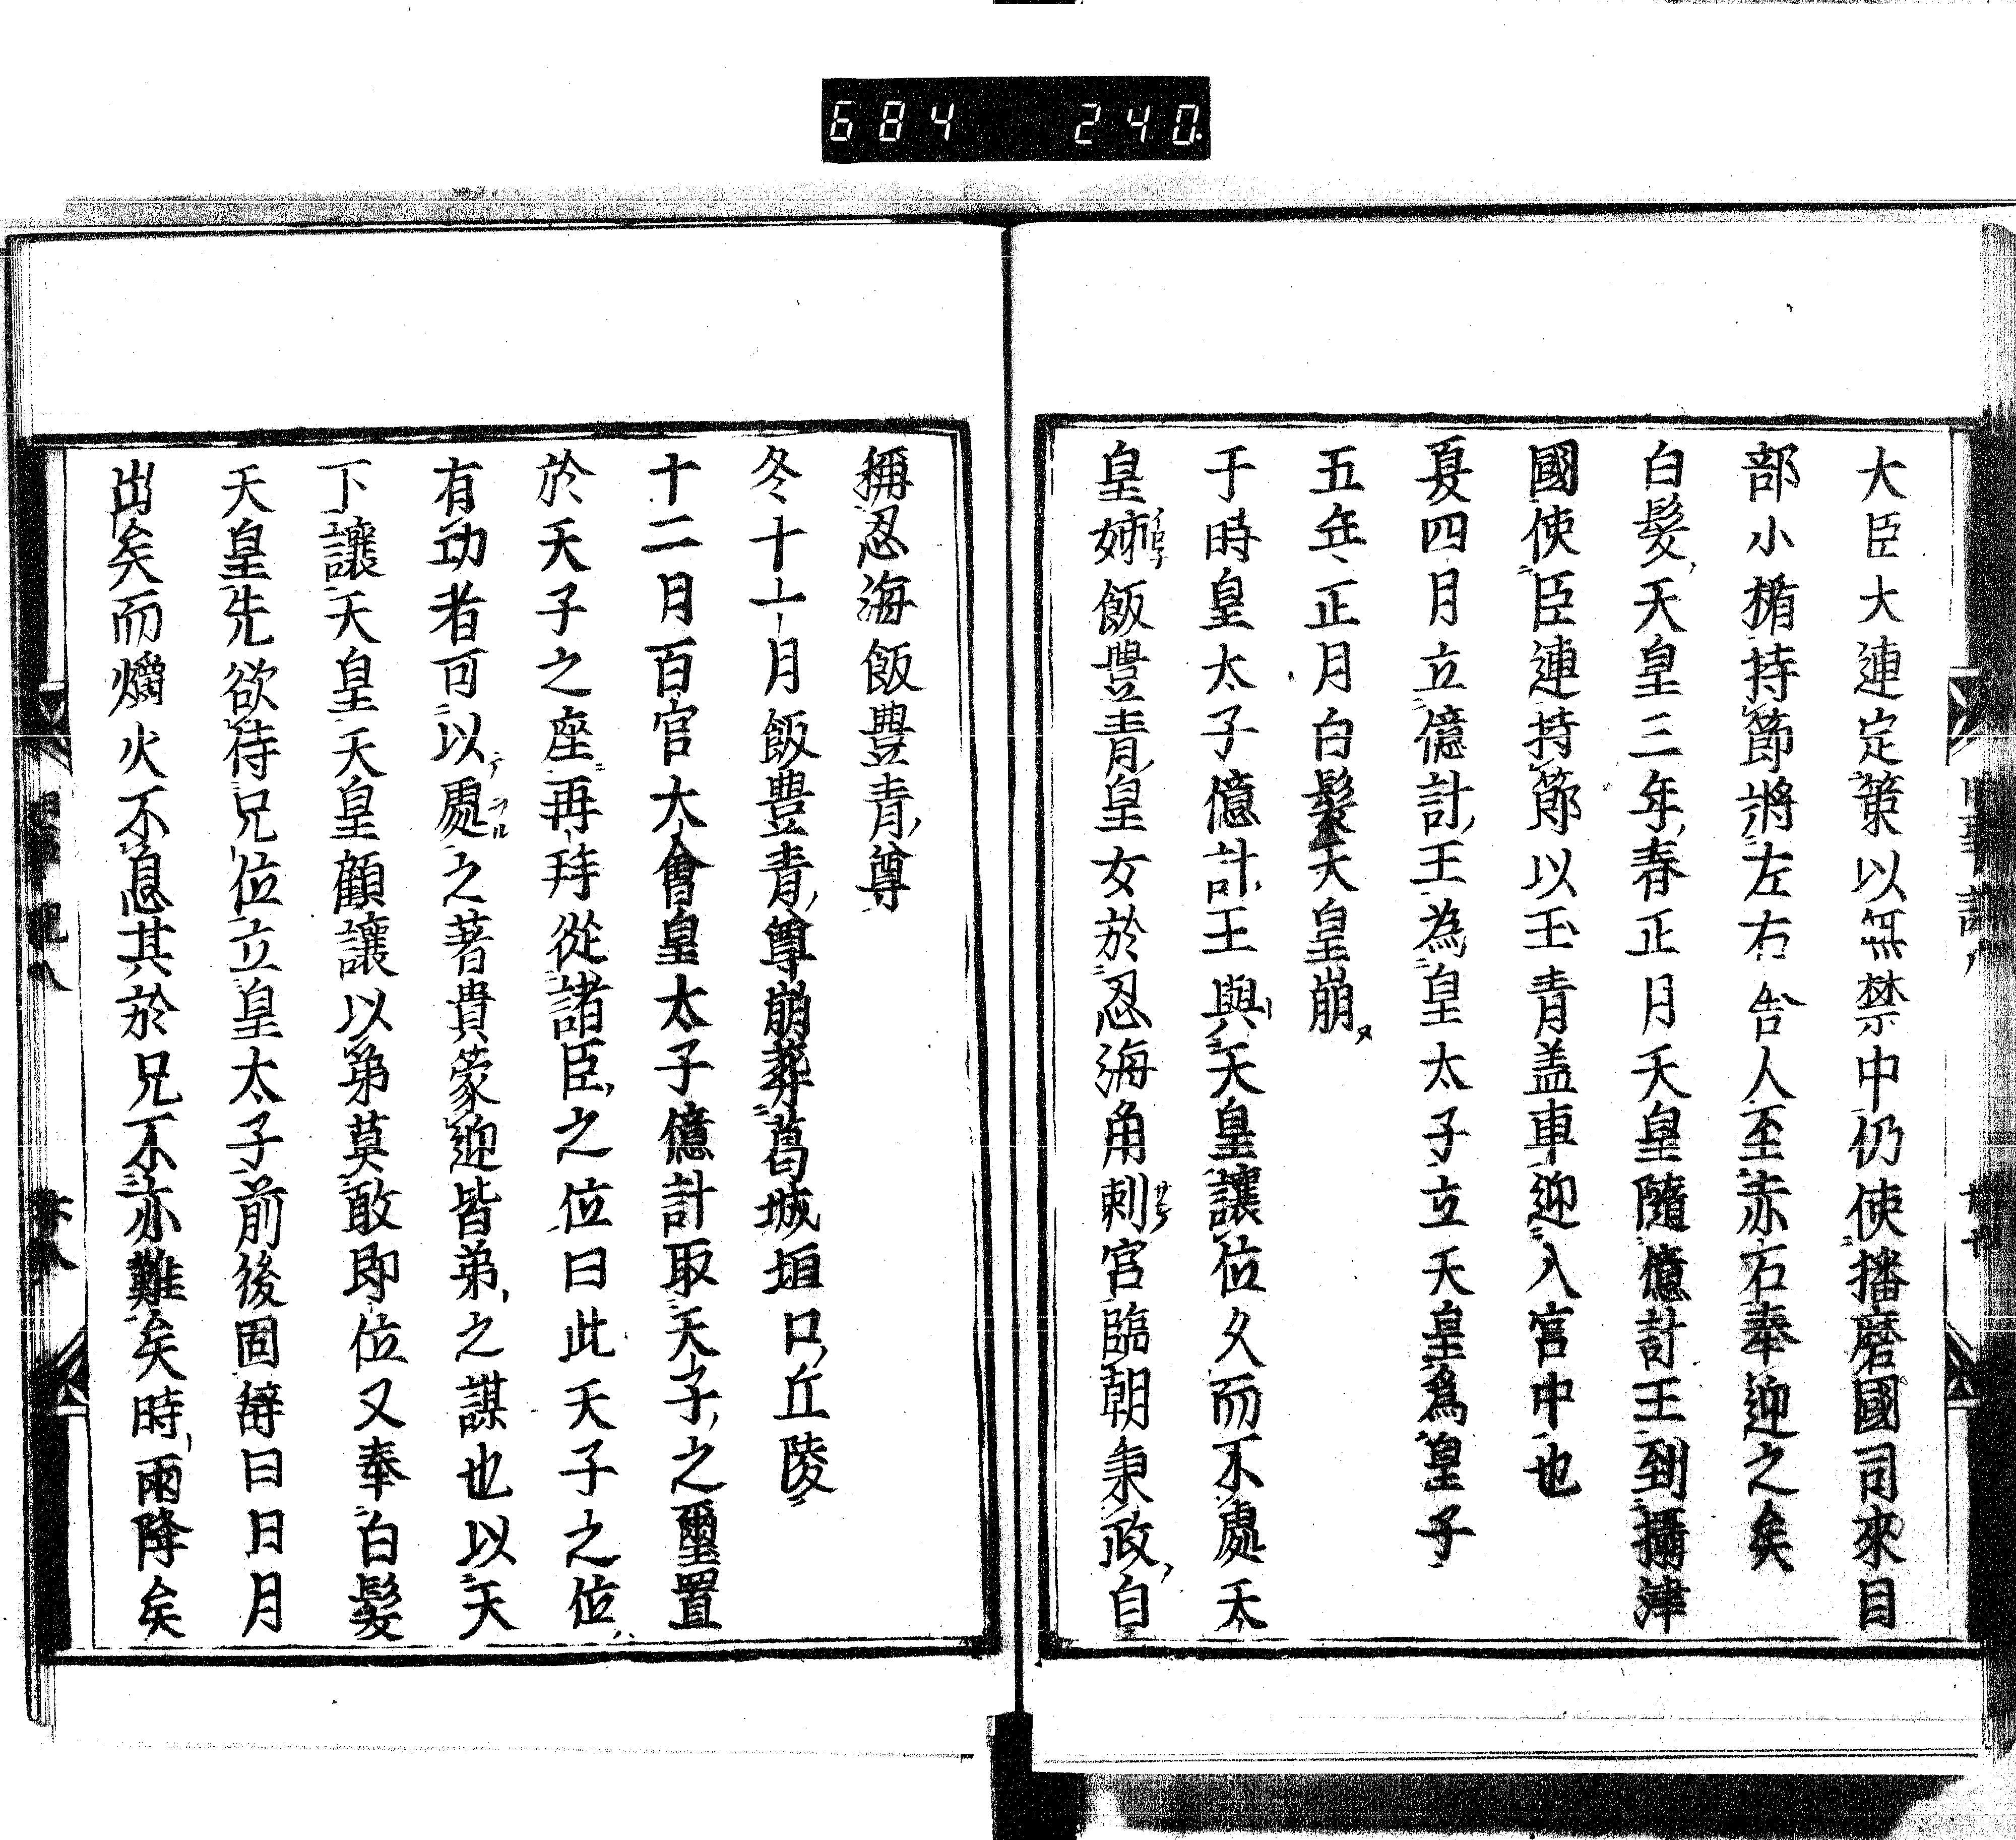 684 240
大臣大連定策以無禁中仍使播磨國司來目
部小楯持節將左右舍人至赤石奉迎之矣
白髮天皇三年春正月天皇隨億計王到攝津
國使臣連持節以王青盖車迎入宮中也
夏四月立億計王為皇太子立天皇爲皇子
五年正月白髮天皇崩
于時皇太子億計王與天皇讓位久而不處太
皇姉飯豊青皇女於忍海角刺宮臨朝秉政自
稱忍海飯豊青尊
冬十一月飯豊青尊崩葬葛城垣口丘陵
十二月百官大會皇太子億計取天子之璽置
於天子之座再拜從諸臣之位曰此天子之位
有功者可以處之著貴蒙迎皆弟之謀也以天
下讓天皇天皇顧讓以弟莫敢即位又奉白髮
天皇先欲待兄位立皇太子前後固辭曰日月
出矣而爝火不息其於兄不亦難矣時雨降矣